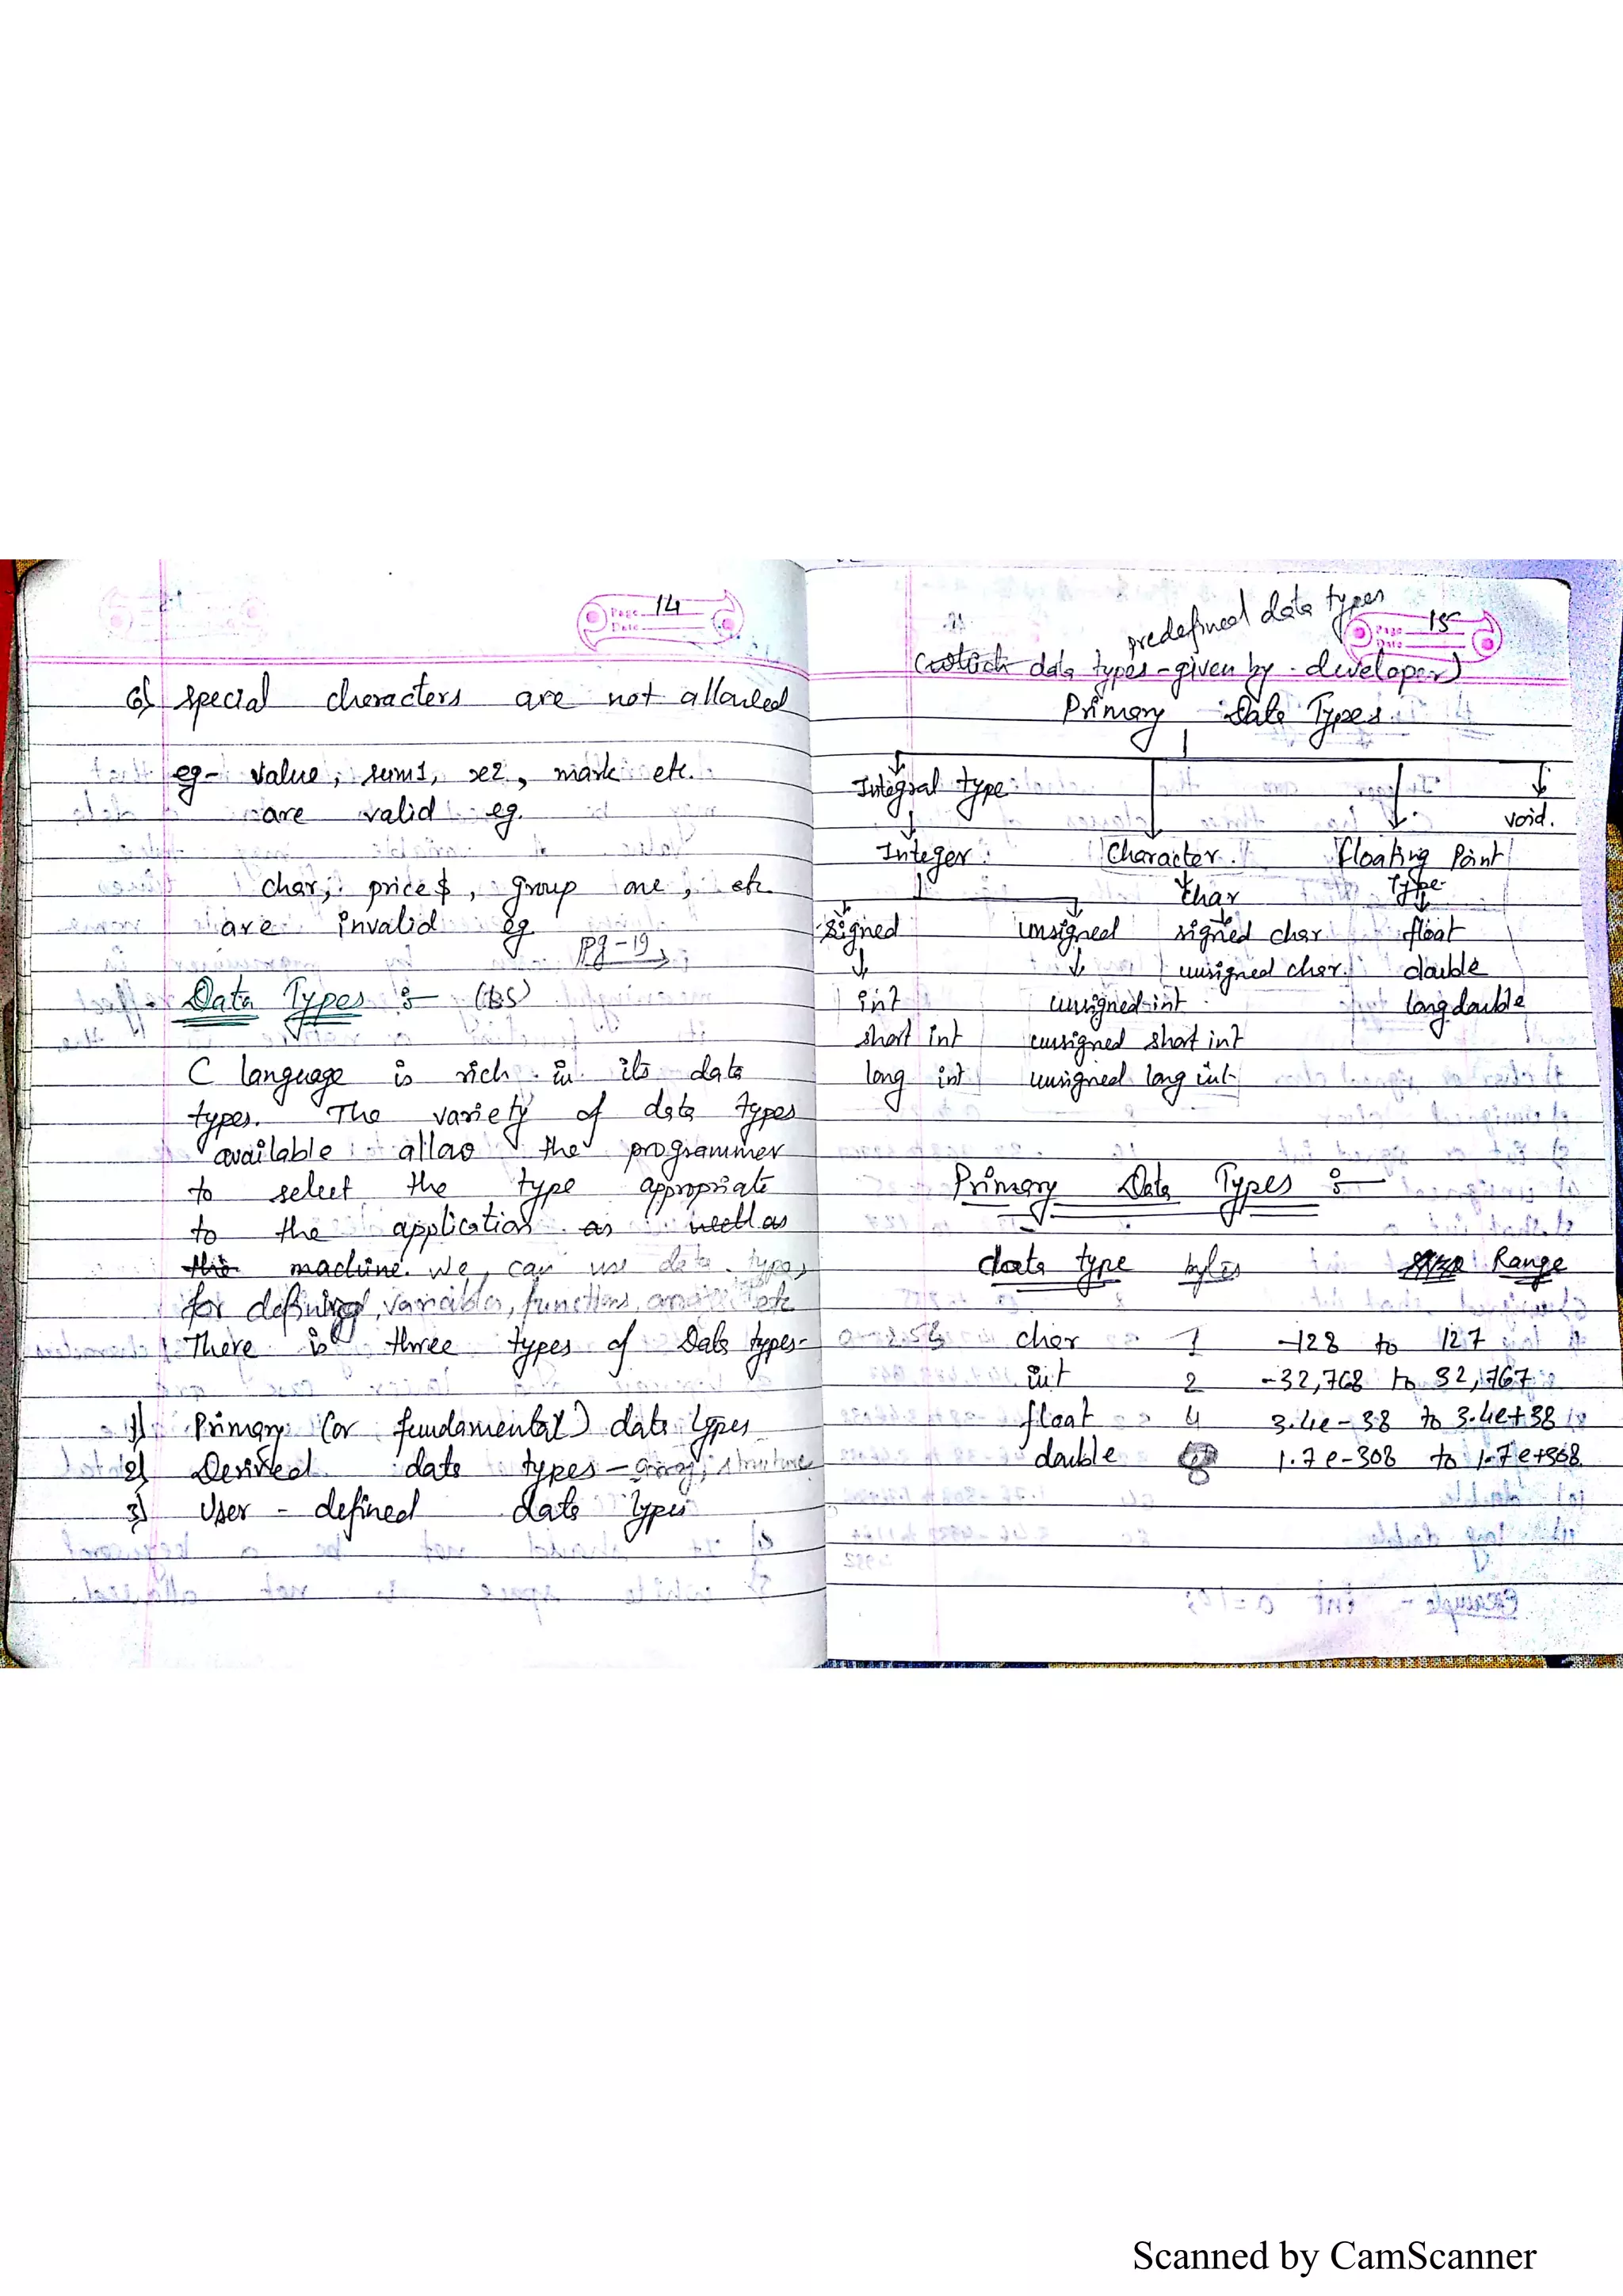 Page 14
Date
6) special characters are not allowed
eg- value, sum1, x2, mark etc.
are valid eg.
char, price$, group one, etc.
are invalid eg
pg-19
Data Types :-
C language is rich in its data
types. The variety of data types
available allao the programmer
to select the type appropriate
to the application as well as
the machine. We can use data types
for defining variables, functions, etc
There is three types of Data types-
1) Primary (or fundamental) data types
2) Derived data types - array, structure
3) User - defined data types
predefined data types
Page 15
Date
(which data types - given by developer)
Primary Data Types
Integral type
void.
Integer Character Floating Point
char Type
signed unsigned signed char float
unsigned char double
int unsigned int long double
short int unsigned short int
long int unsigned long int
Primary Data Types :-
data type bytes Range
char 1 -128 to 127
int 2 -32,768 to 32,767
float 4 3.4e-38 to 3.4e+38
double 8 1.7e-308 to 1.7e+308
Scanned by CamScanner